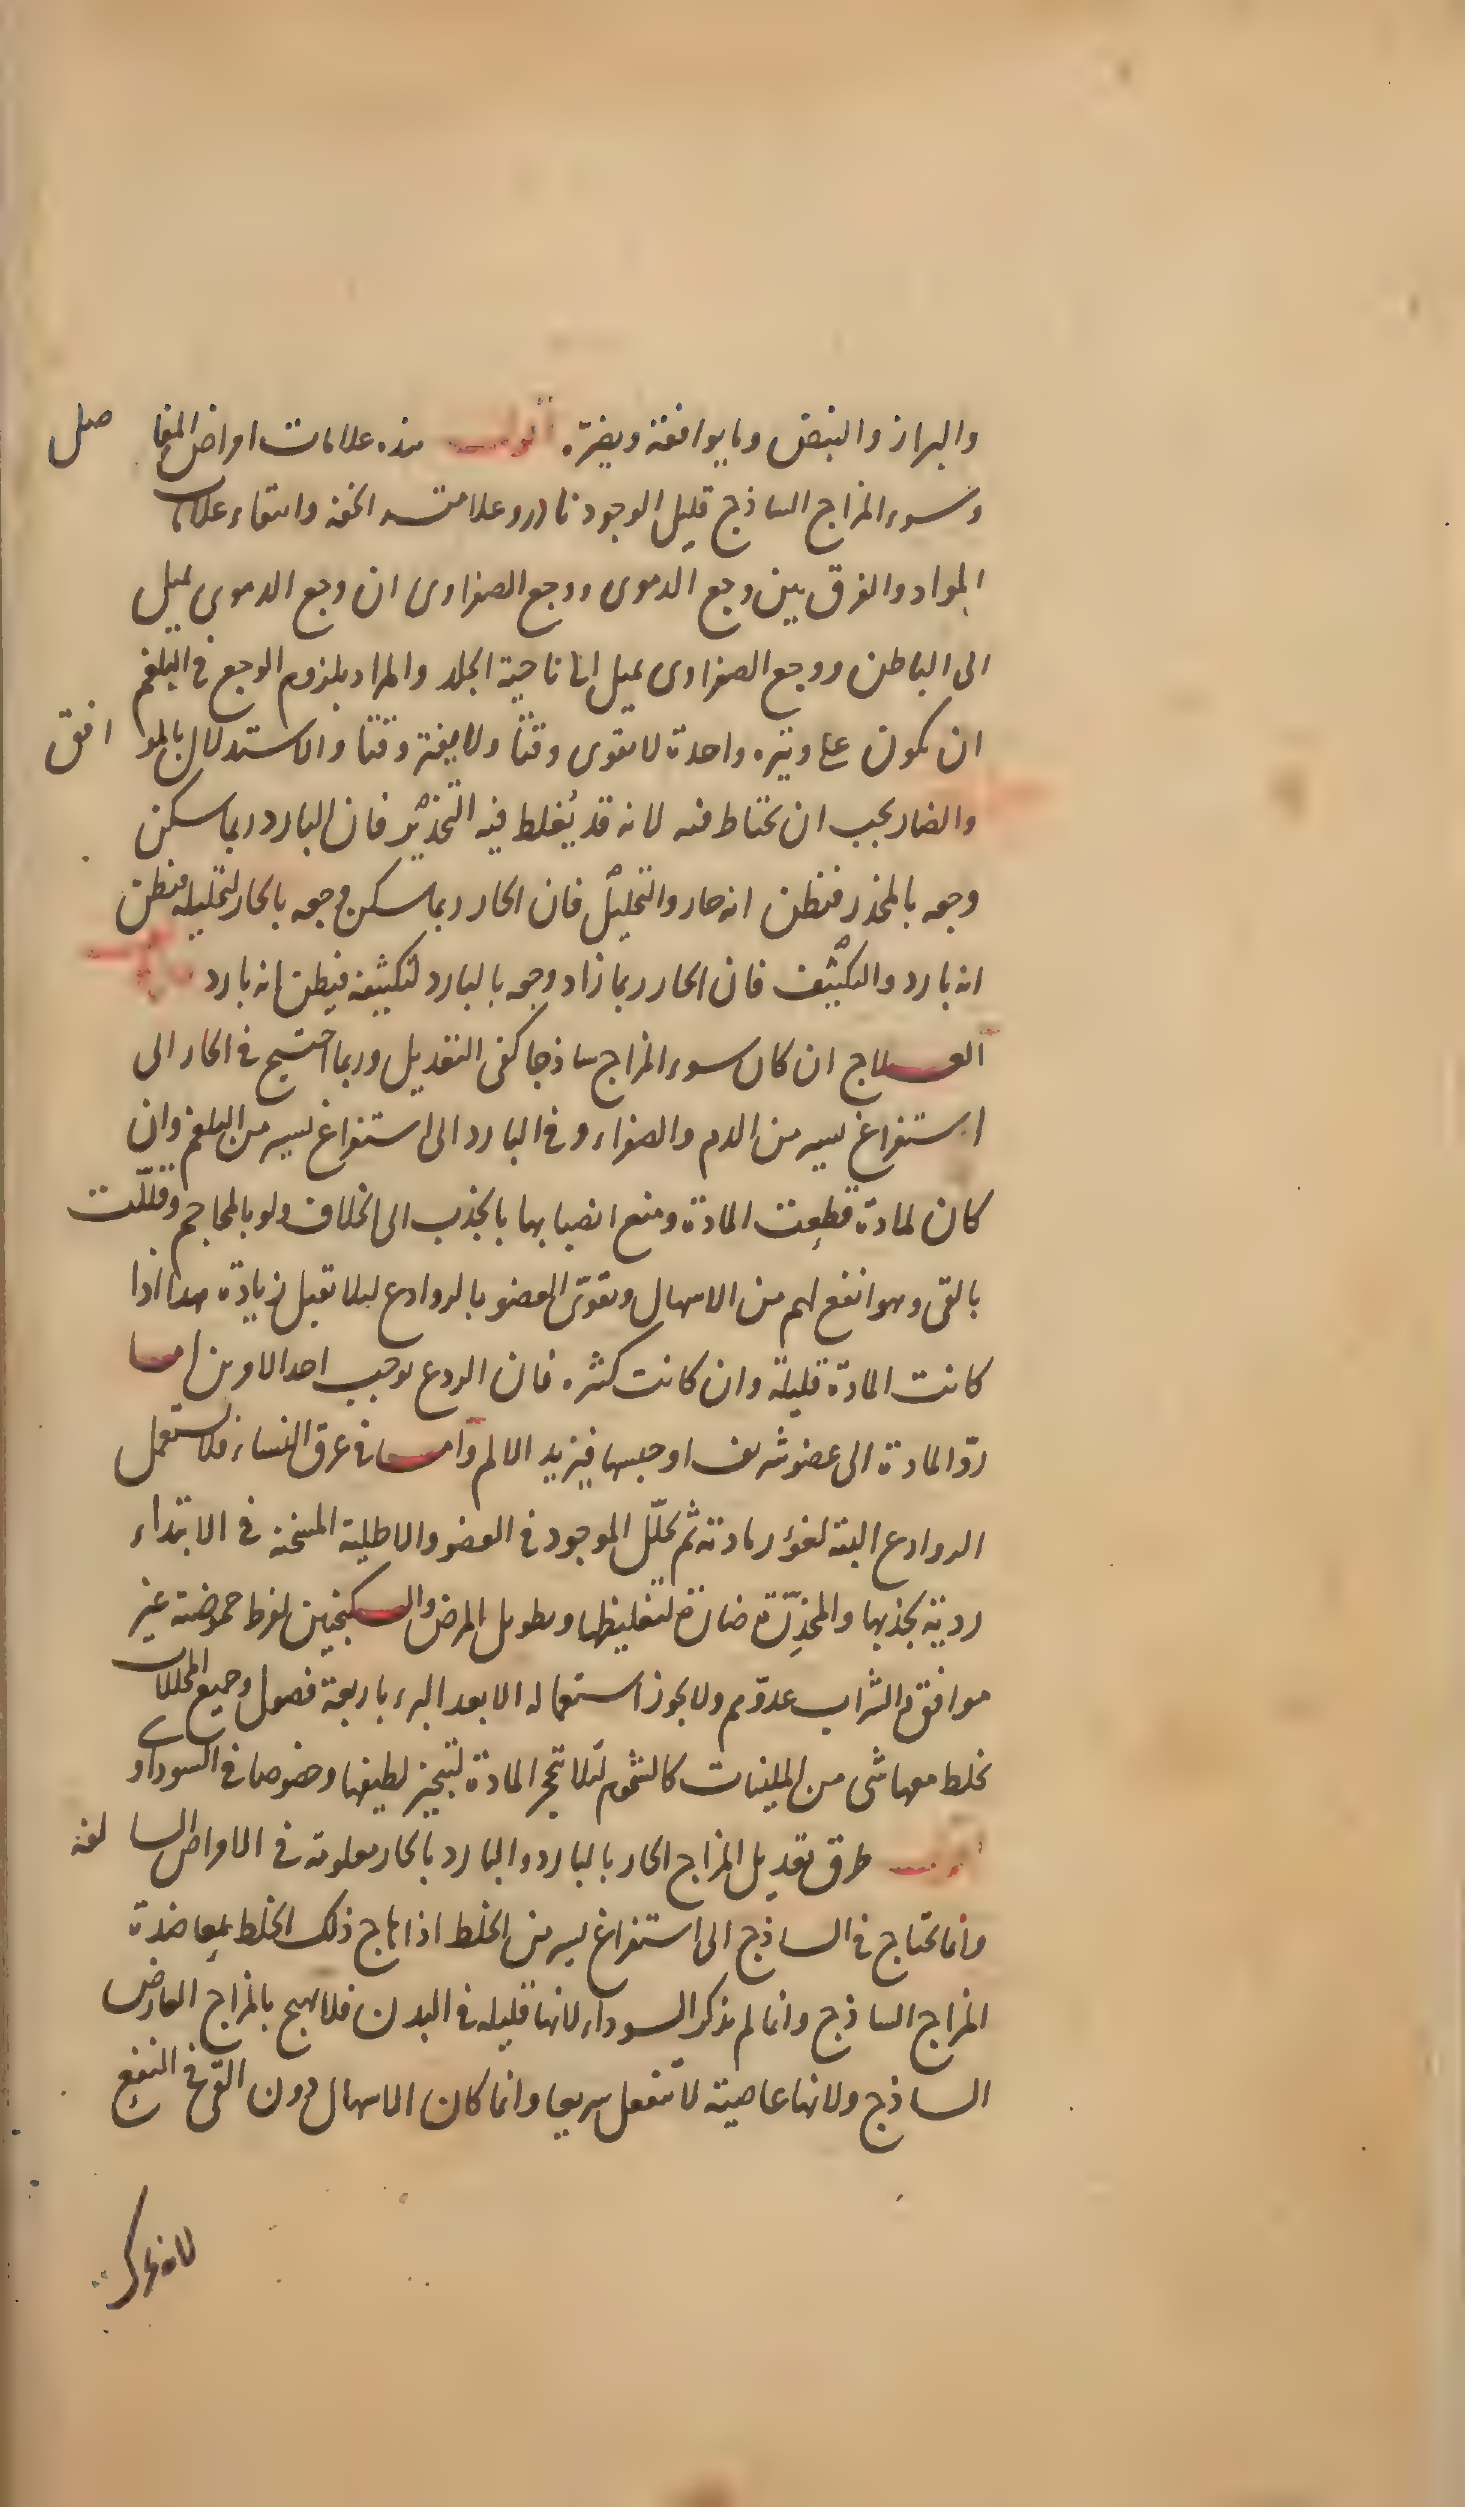 والبراز والنبض وما يوافقه ويضره اقول هذه علامات امراض المفاصل
وسوء المزاج الساذج قليل الوجود نادر وعلامته الخفة وانتفاء علامات
المواد والفرق بين وجع الدموى ووجع الصفراوى ان وجع الدموى يميل
الى الباطن ووجع الصفراوى يميل الى ناحية الجلد والمراد بلزوم الوجع فى البلغم
ان يكون على وتيرة واحدة لا يقوى وقتا ولا يفتر وقتا والاستدلال بالموافق
والضار يجب ان يحتاط فيه لانه قد يُغلط فيه التخدير فان البارد ربما سكن
وجعه بالمخدر فيظن انه حار والتحليل فان الحار ربما سكن وجعه بالحار لتحليله فيظن
انه بارد والتكثيف فان الحار ربما زاد وجعه بالبارد لتكثيفه فيظن انه بارد
العلاج ان كان سوء المزاج ساذجا كفى التعديل وربما احتيج فى الحار الى
استفراغ يسير من الدم والصفراء وفى البارد الى استفراغ يسير من البلغم وان
كان لمادة قطعت المادة ومنع انصبابها بالجذب الى الخلاف ولو بالمحاجم وقللت
بالقى وهو انفع لهم من الاسهال ويقوى العضو بالروادع ليلا تقبل زيادة هذا اذا
كانت المادة قليلة وان كانت كثيره فان الردع يوجب احد الامرين اما
ردّ المادة الى عضو شريف او حبسها فيزيد الالم وأما فى عرق النساء فلا تستعمل
الروادع البتة لغؤر مادته ثم يحلل الموجود فى العضو والاطلية المسخنة فى الابتداء
ردية بجذبها والمخدّرة ضارة لتغليظها وتطويل المرض والسكنجبين لفرط حموضته غير
موافق والشراب عدوّهم ولا يجوز استعماله الا بعد البرء باربعة فصول وجميع المحللات
يخلط معها شى من الملينات كالشحوم ليلا تتحجر المادة لتبخير لطيفها وخصوصا فى السوداو
اقول طرق تعديل المزاج الحار بالبارد والبارد بالحار معلومة فى الامراض السالفة
وانما يحتاج فى الساذج الى استفراغ يسير من الخلط اذا هاج ذلك الخلط بمعاضدة
المزاج الساذج وانما لم يذكر السوداء لانها قليله فى البدن فلا تهيج بالمزاج العارض
الساذج ولانها عاصية لا تنفعل سريعا وانما كان الاسهال دون القئ فى النفع